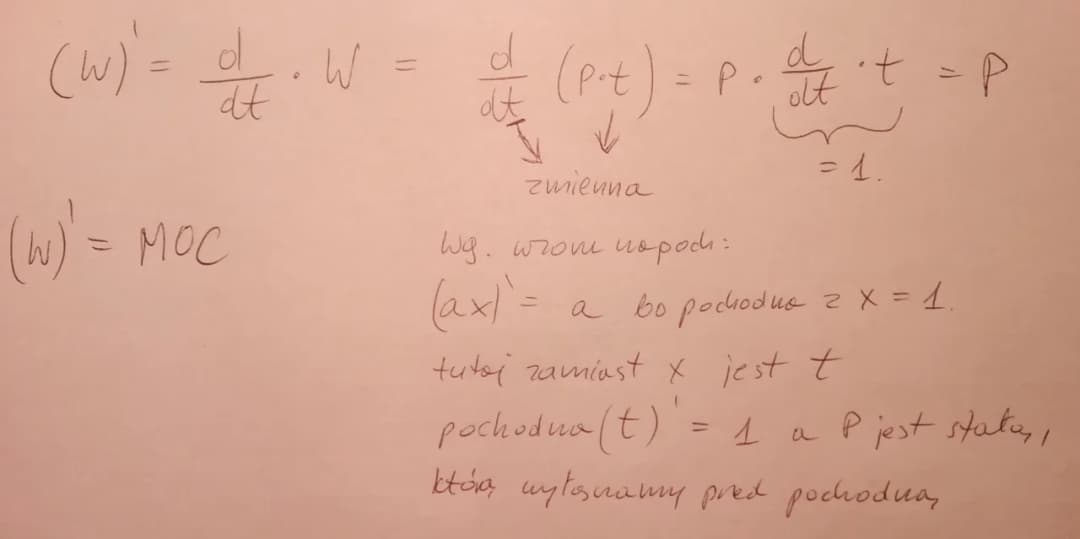 (W)' = d/dt · W = d/dt (P·t) = P · d/dt · t = P
zmienna
= 1.
(W)' = MOC
Wg. wzoru na poch:
(ax)' = a bo pochodna z x = 1.
tutaj zamiast x jest t
pochodna (t)' = 1 a P jest stałą,
którą wyłączamy pred pochodną